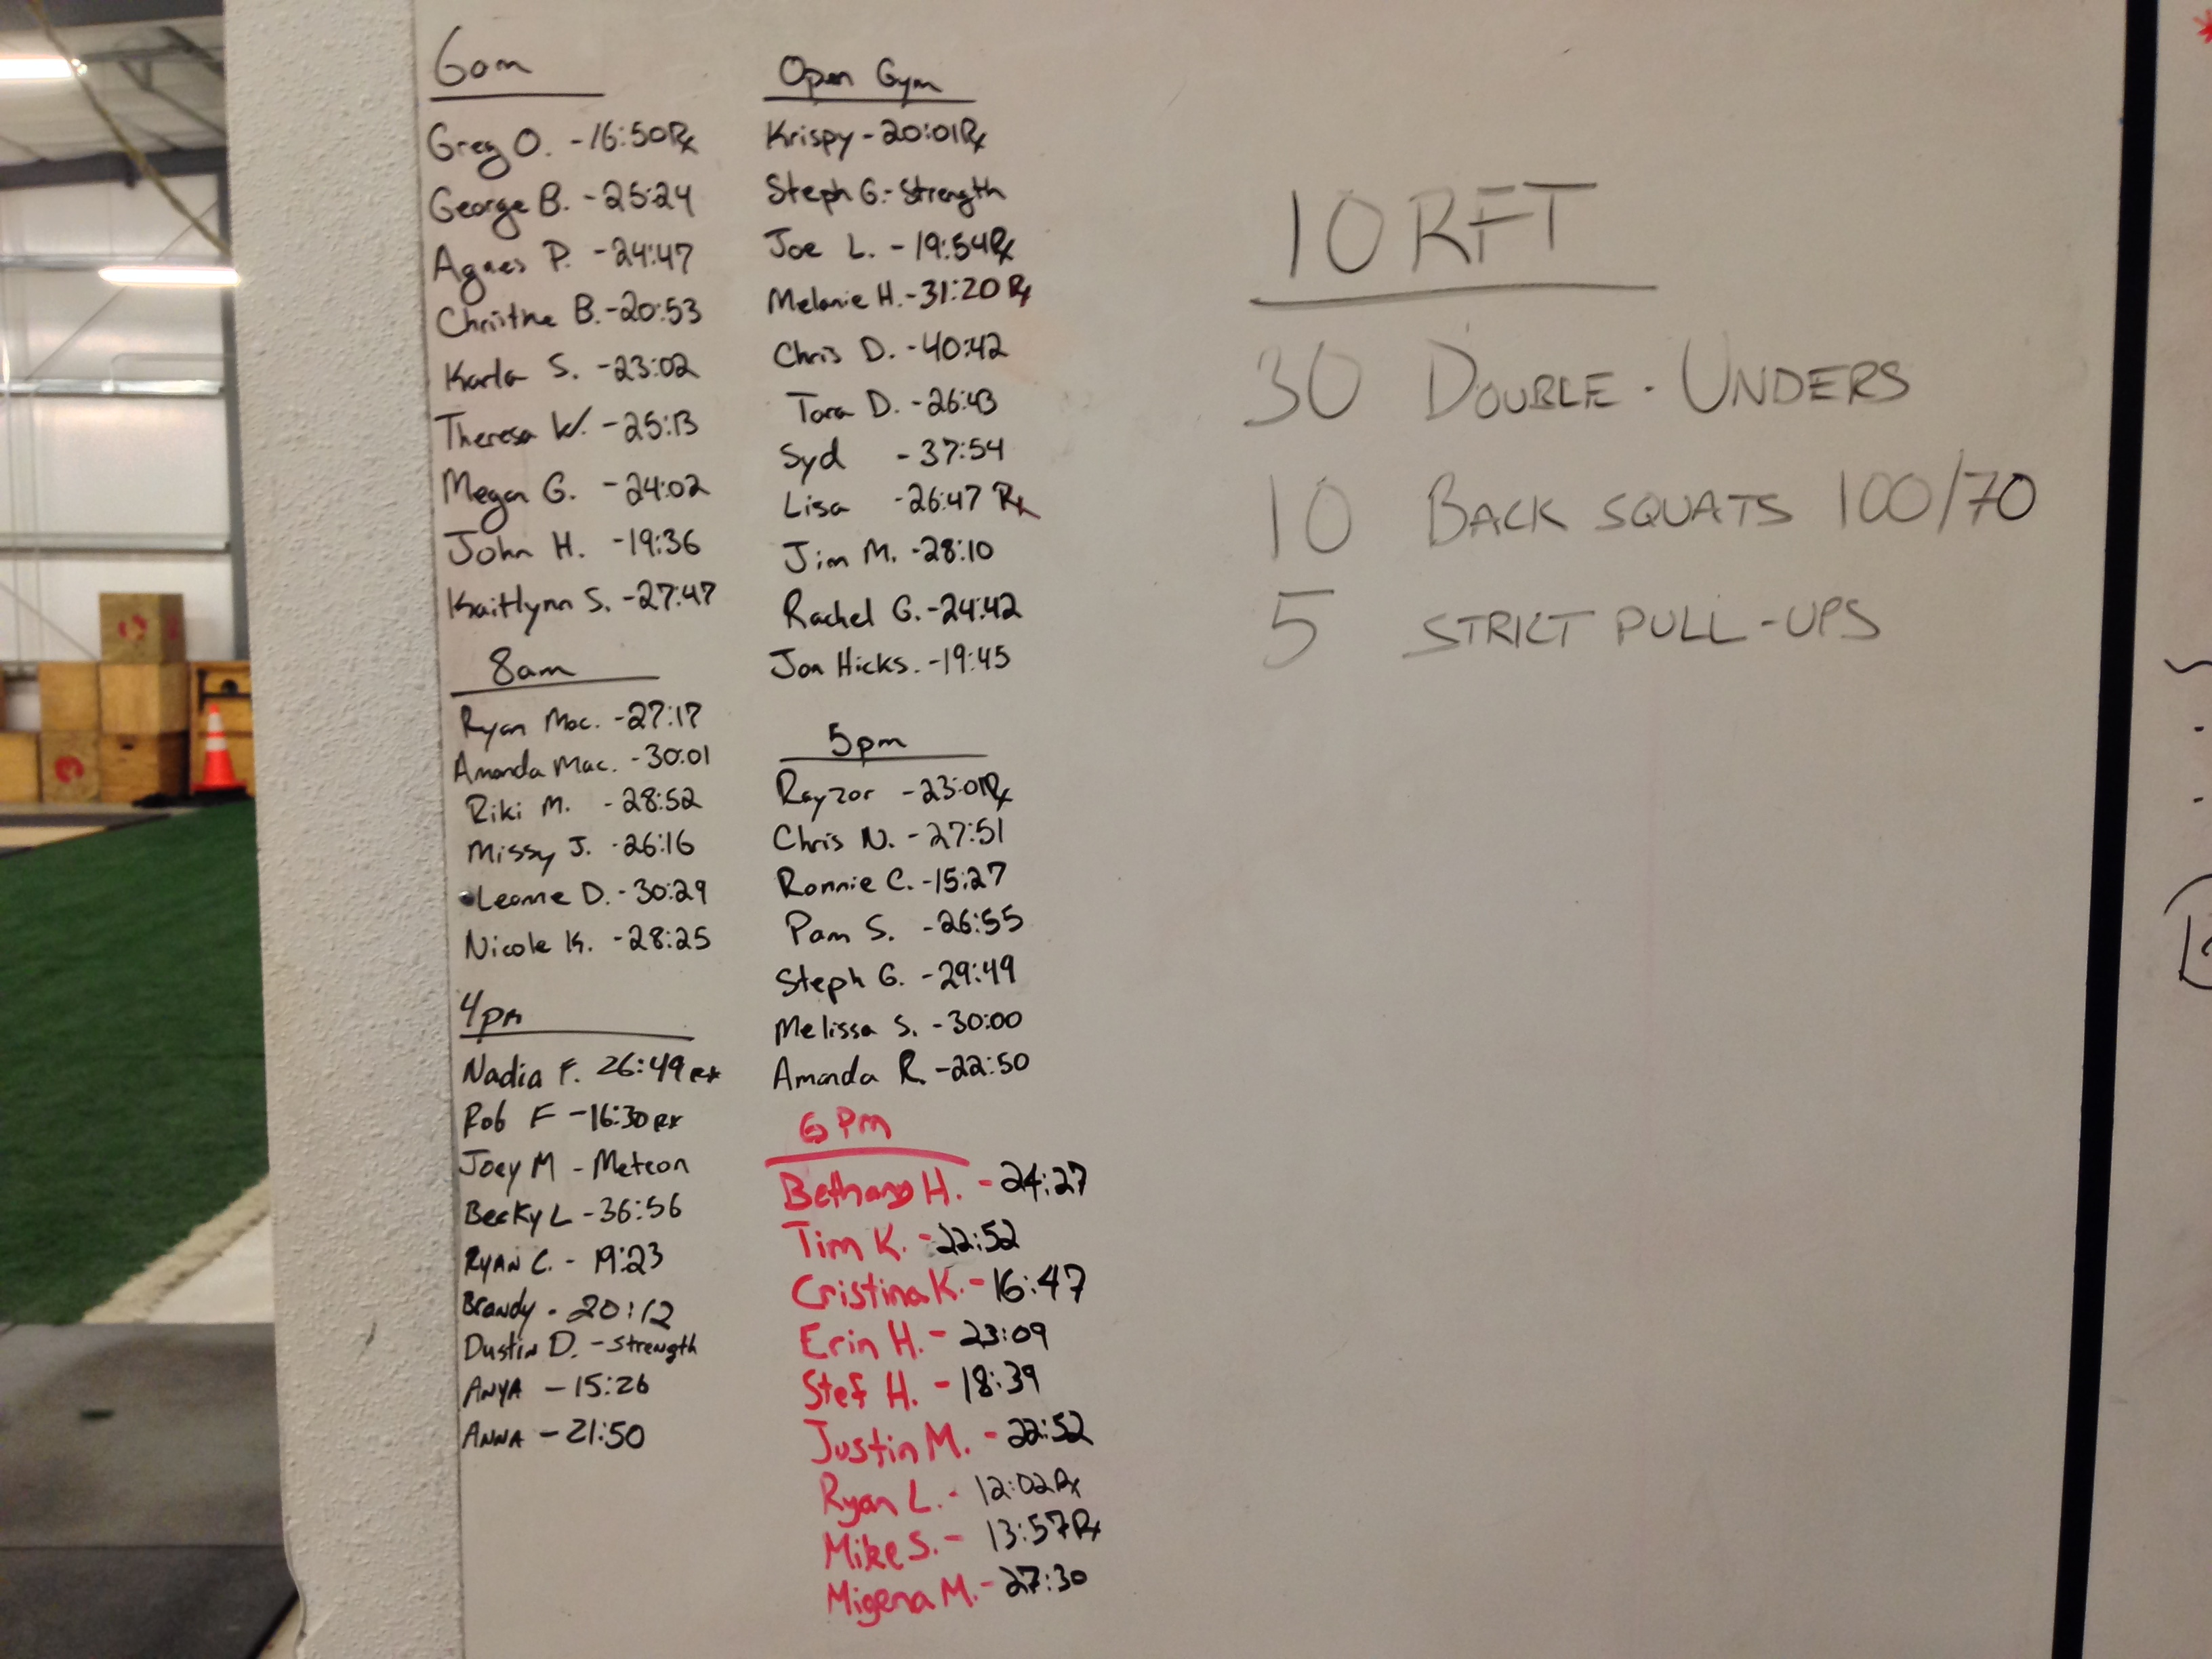 6am
Greg O. - 16:50 Rx
George B. - 25:24
Agnes P. - 24:47
Christine B. - 20:53
Karla S. - 23:02
Theresa W. - 25:13
Megan G. - 24:02
John H. - 19:36
Kaitlynn S. - 27:47
8am
Ryan Mac. - 27:17
Amanda Mac. - 30:01
Riki M. - 28:52
Missy J. - 26:16
Leanne D. - 30:29
Nicole K. - 28:25
4pm
Nadia F. 26:49 Rx
Rob F - 16:30 Rx
Joey M - Metcon
Becky L - 36:56
RYAN C. - 19:23
Brandy - 20:12
Dustin D. - Strength
ANYA - 15:26
ANNA - 21:50
Open Gym
Krispy - 20:01 Rx
Steph G. - Strength
Joe L. - 19:54 Rx
Melanie H. - 31:20 Rx
Chris D. - 40:42
Tara D. - 26:43
Syd - 37:54
Lisa - 26:47 Rx
Jim M. - 28:10
Rachel G. - 24:42
Jon Hicks. - 19:45
5pm
Rayzor - 23:01 Rx
Chris N. - 27:51
Ronnie C. - 15:27
Pam S. - 26:55
Steph G. - 29:49
Melissa S. - 30:00
Amanda R. - 22:50
6pm
Bethany H. - 24:27
Tim K. - 22:52
Cristina K. - 16:47
Erin H. - 23:09
Stef H. - 18:39
Justin M. - 22:52
Ryan L. - 12:02 Rx
Mike S. - 13:57 Rx
Migena M. - 27:30
10 RFT
30 DOUBLE - UNDERS
10 BACK SQUATS 100/70
5 STRICT PULL-UPS